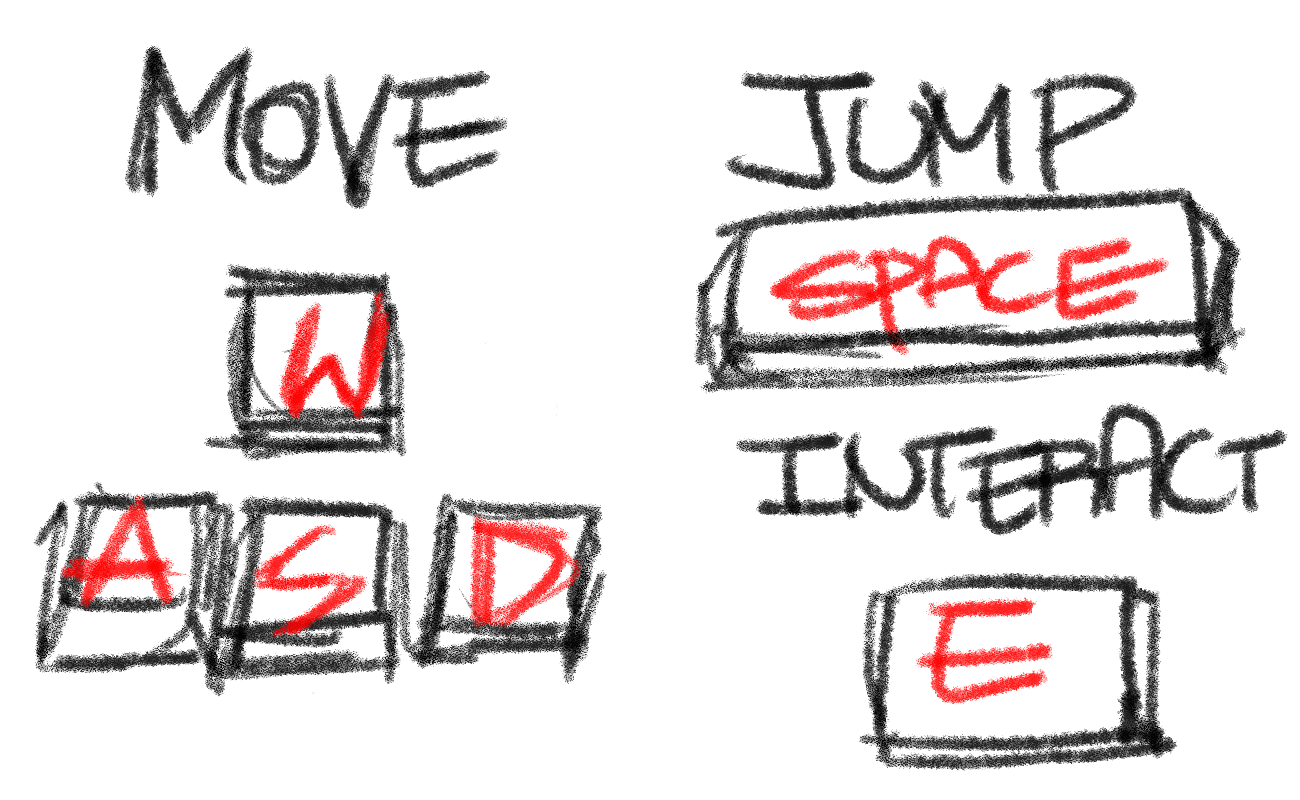 MOVE
W
A S D
JUMP
SPACE
INTERACT
E